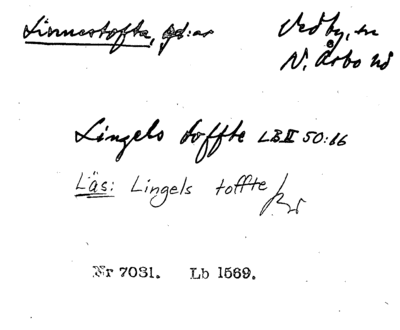 Linnestofta, gd:ar
Vedby, sn
N. Åsbo hd
Lingels toffte LB II 50:16
Läs: Lingels toffte
Nr 7031. Lb 1569.